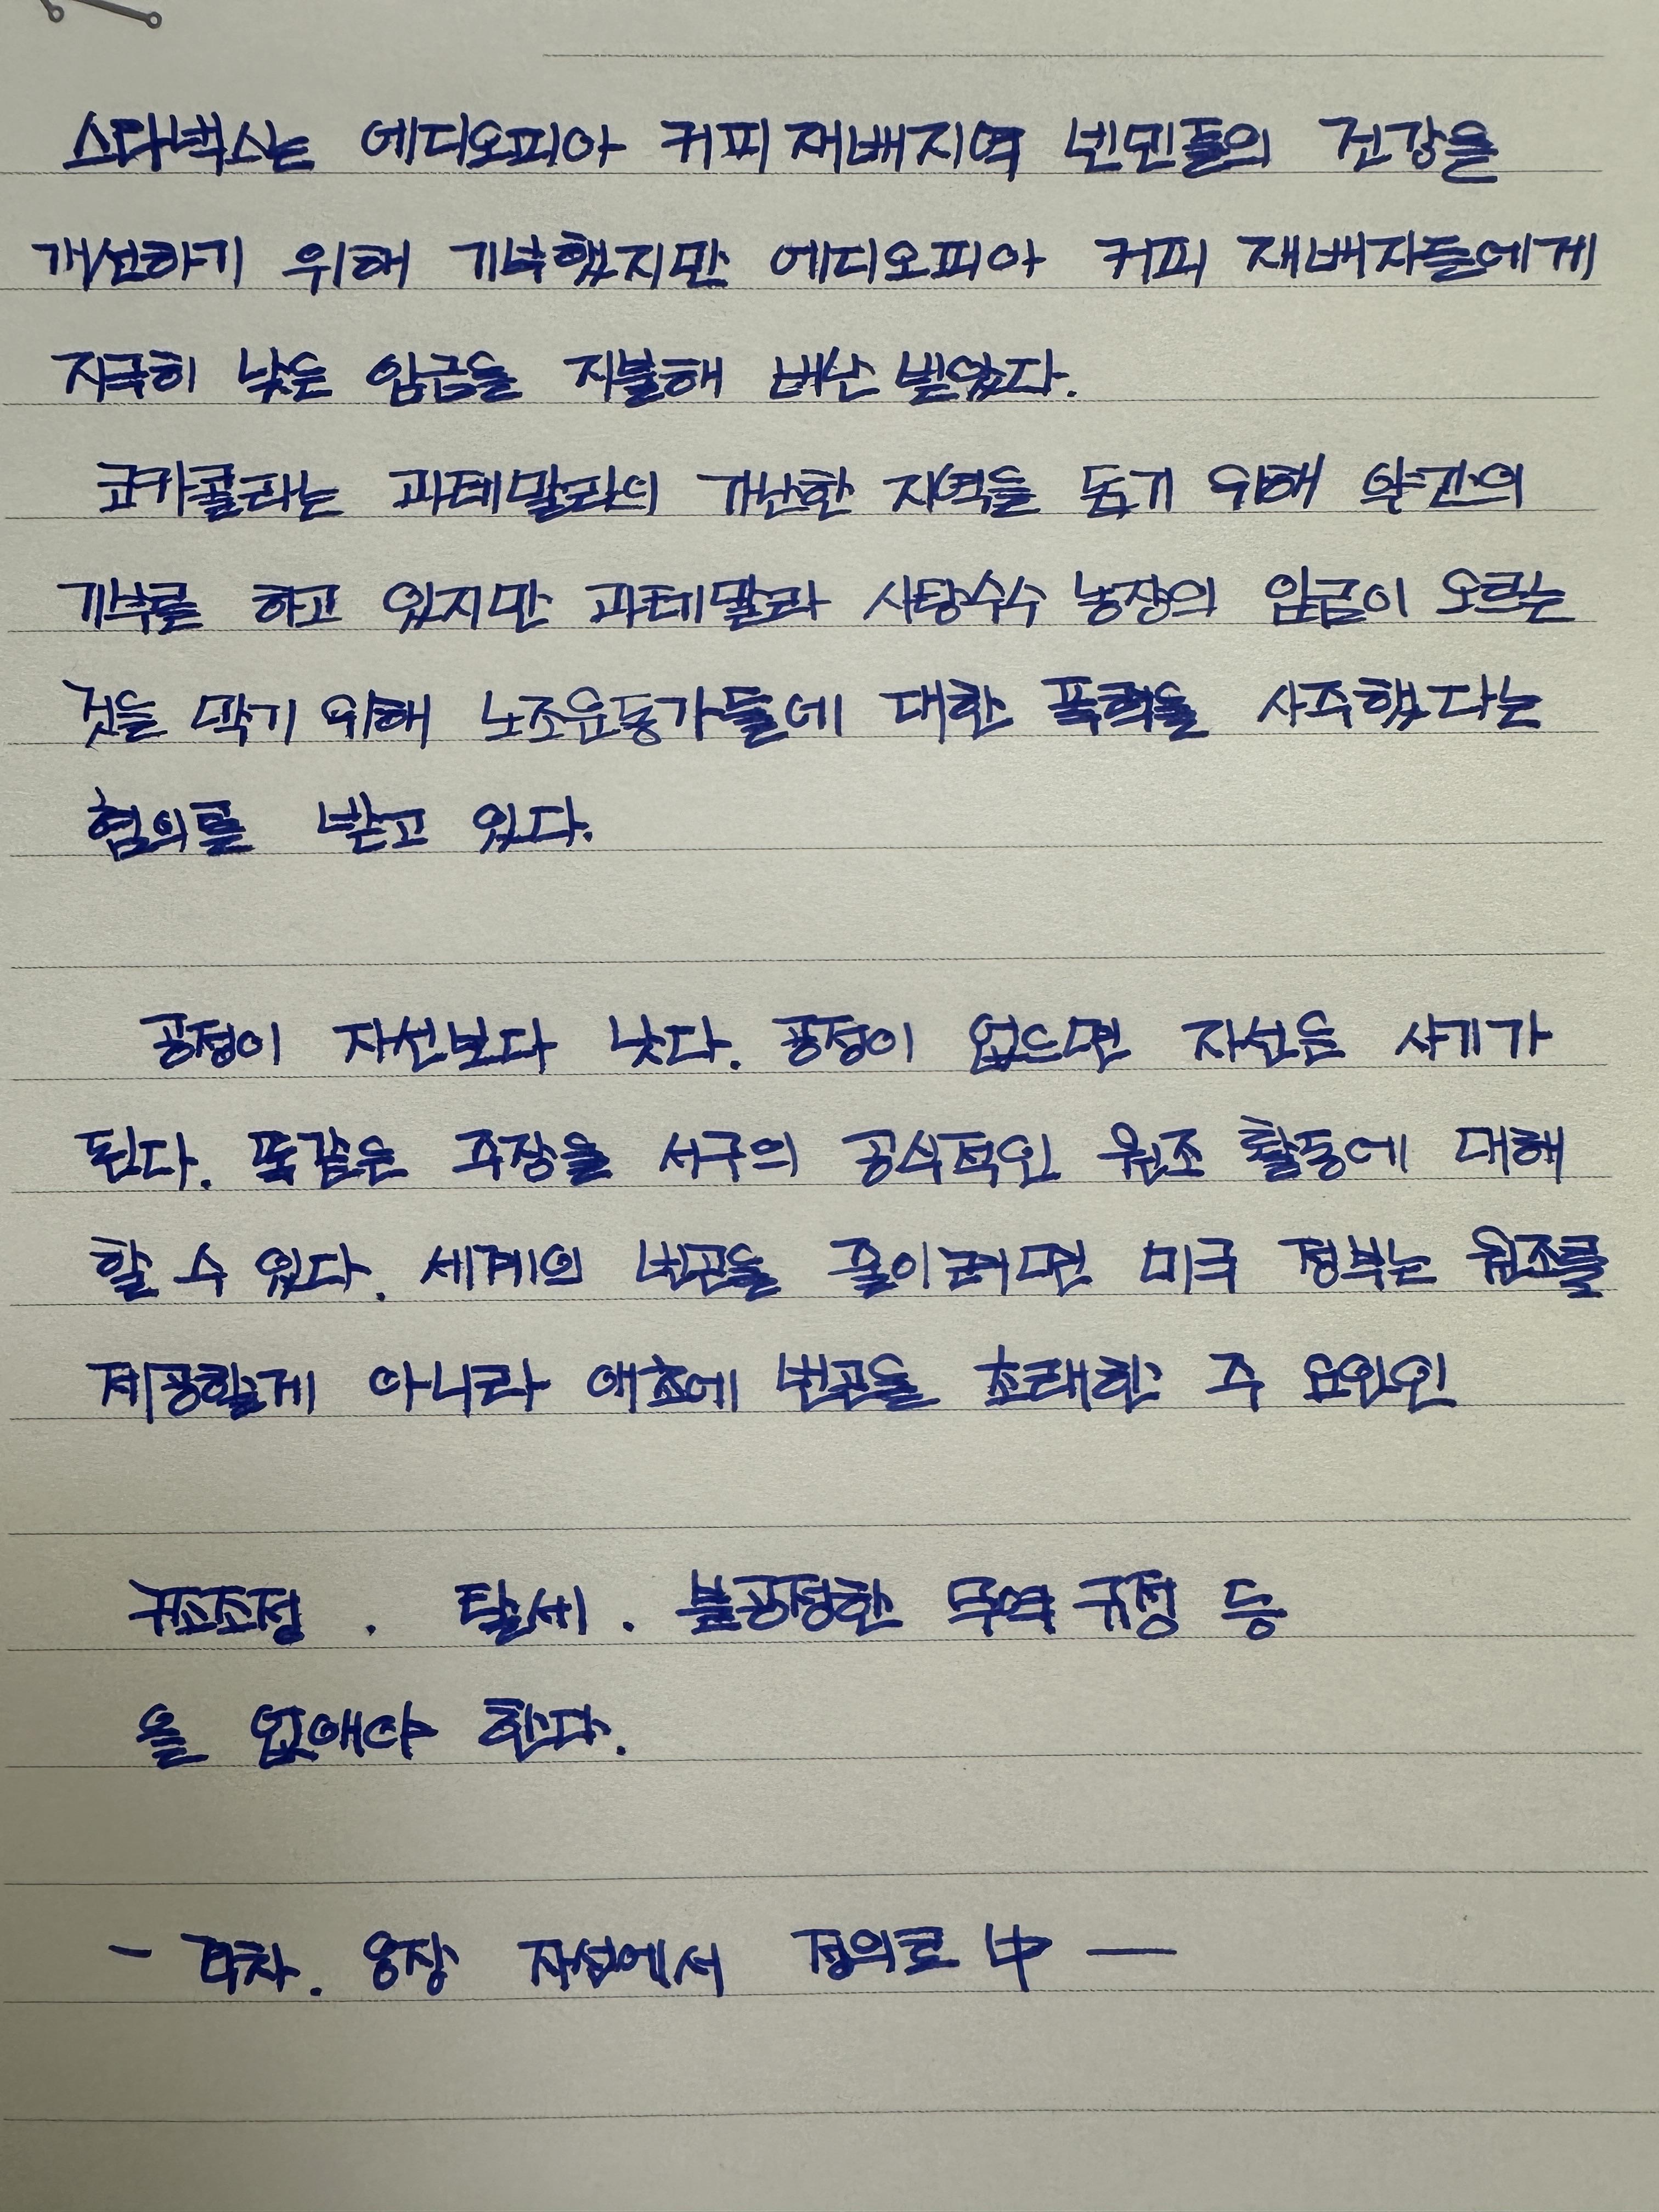 스타벅스는 에디오피아 커피 재배지역 빈민들의 건강을
개선하기 위해 기부했지만 에디오피아 커피 재배자들에게
지극히 낮은 임금을 지불해 비난 받았다.
코카콜라는 과테말라의 가난한 지역을 돕기 위해 약간의
기부를 하고 있지만 과테말라 사탕수수 농장의 임금이 오르는
것을 막기 위해 노조운동가들에 대한 폭력을 사주했다는
혐의를 받고 있다.
공정이 자선보다 낫다. 공정이 없으면 자선은 사기가
된다. 똑같은 주장을 서구의 공식적인 원조 활동에 대해
할 수 있다. 세계의 빈곤을 줄이려면 미국 정부는 원조를
제공할게 아니라 애초에 빈곤을 초래한 주 요인인
구조조정 . 탈세 . 불공정한 무역 규정 등
을 없애야 한다.
- 격차. 8장 자선에서 정의로 中 -